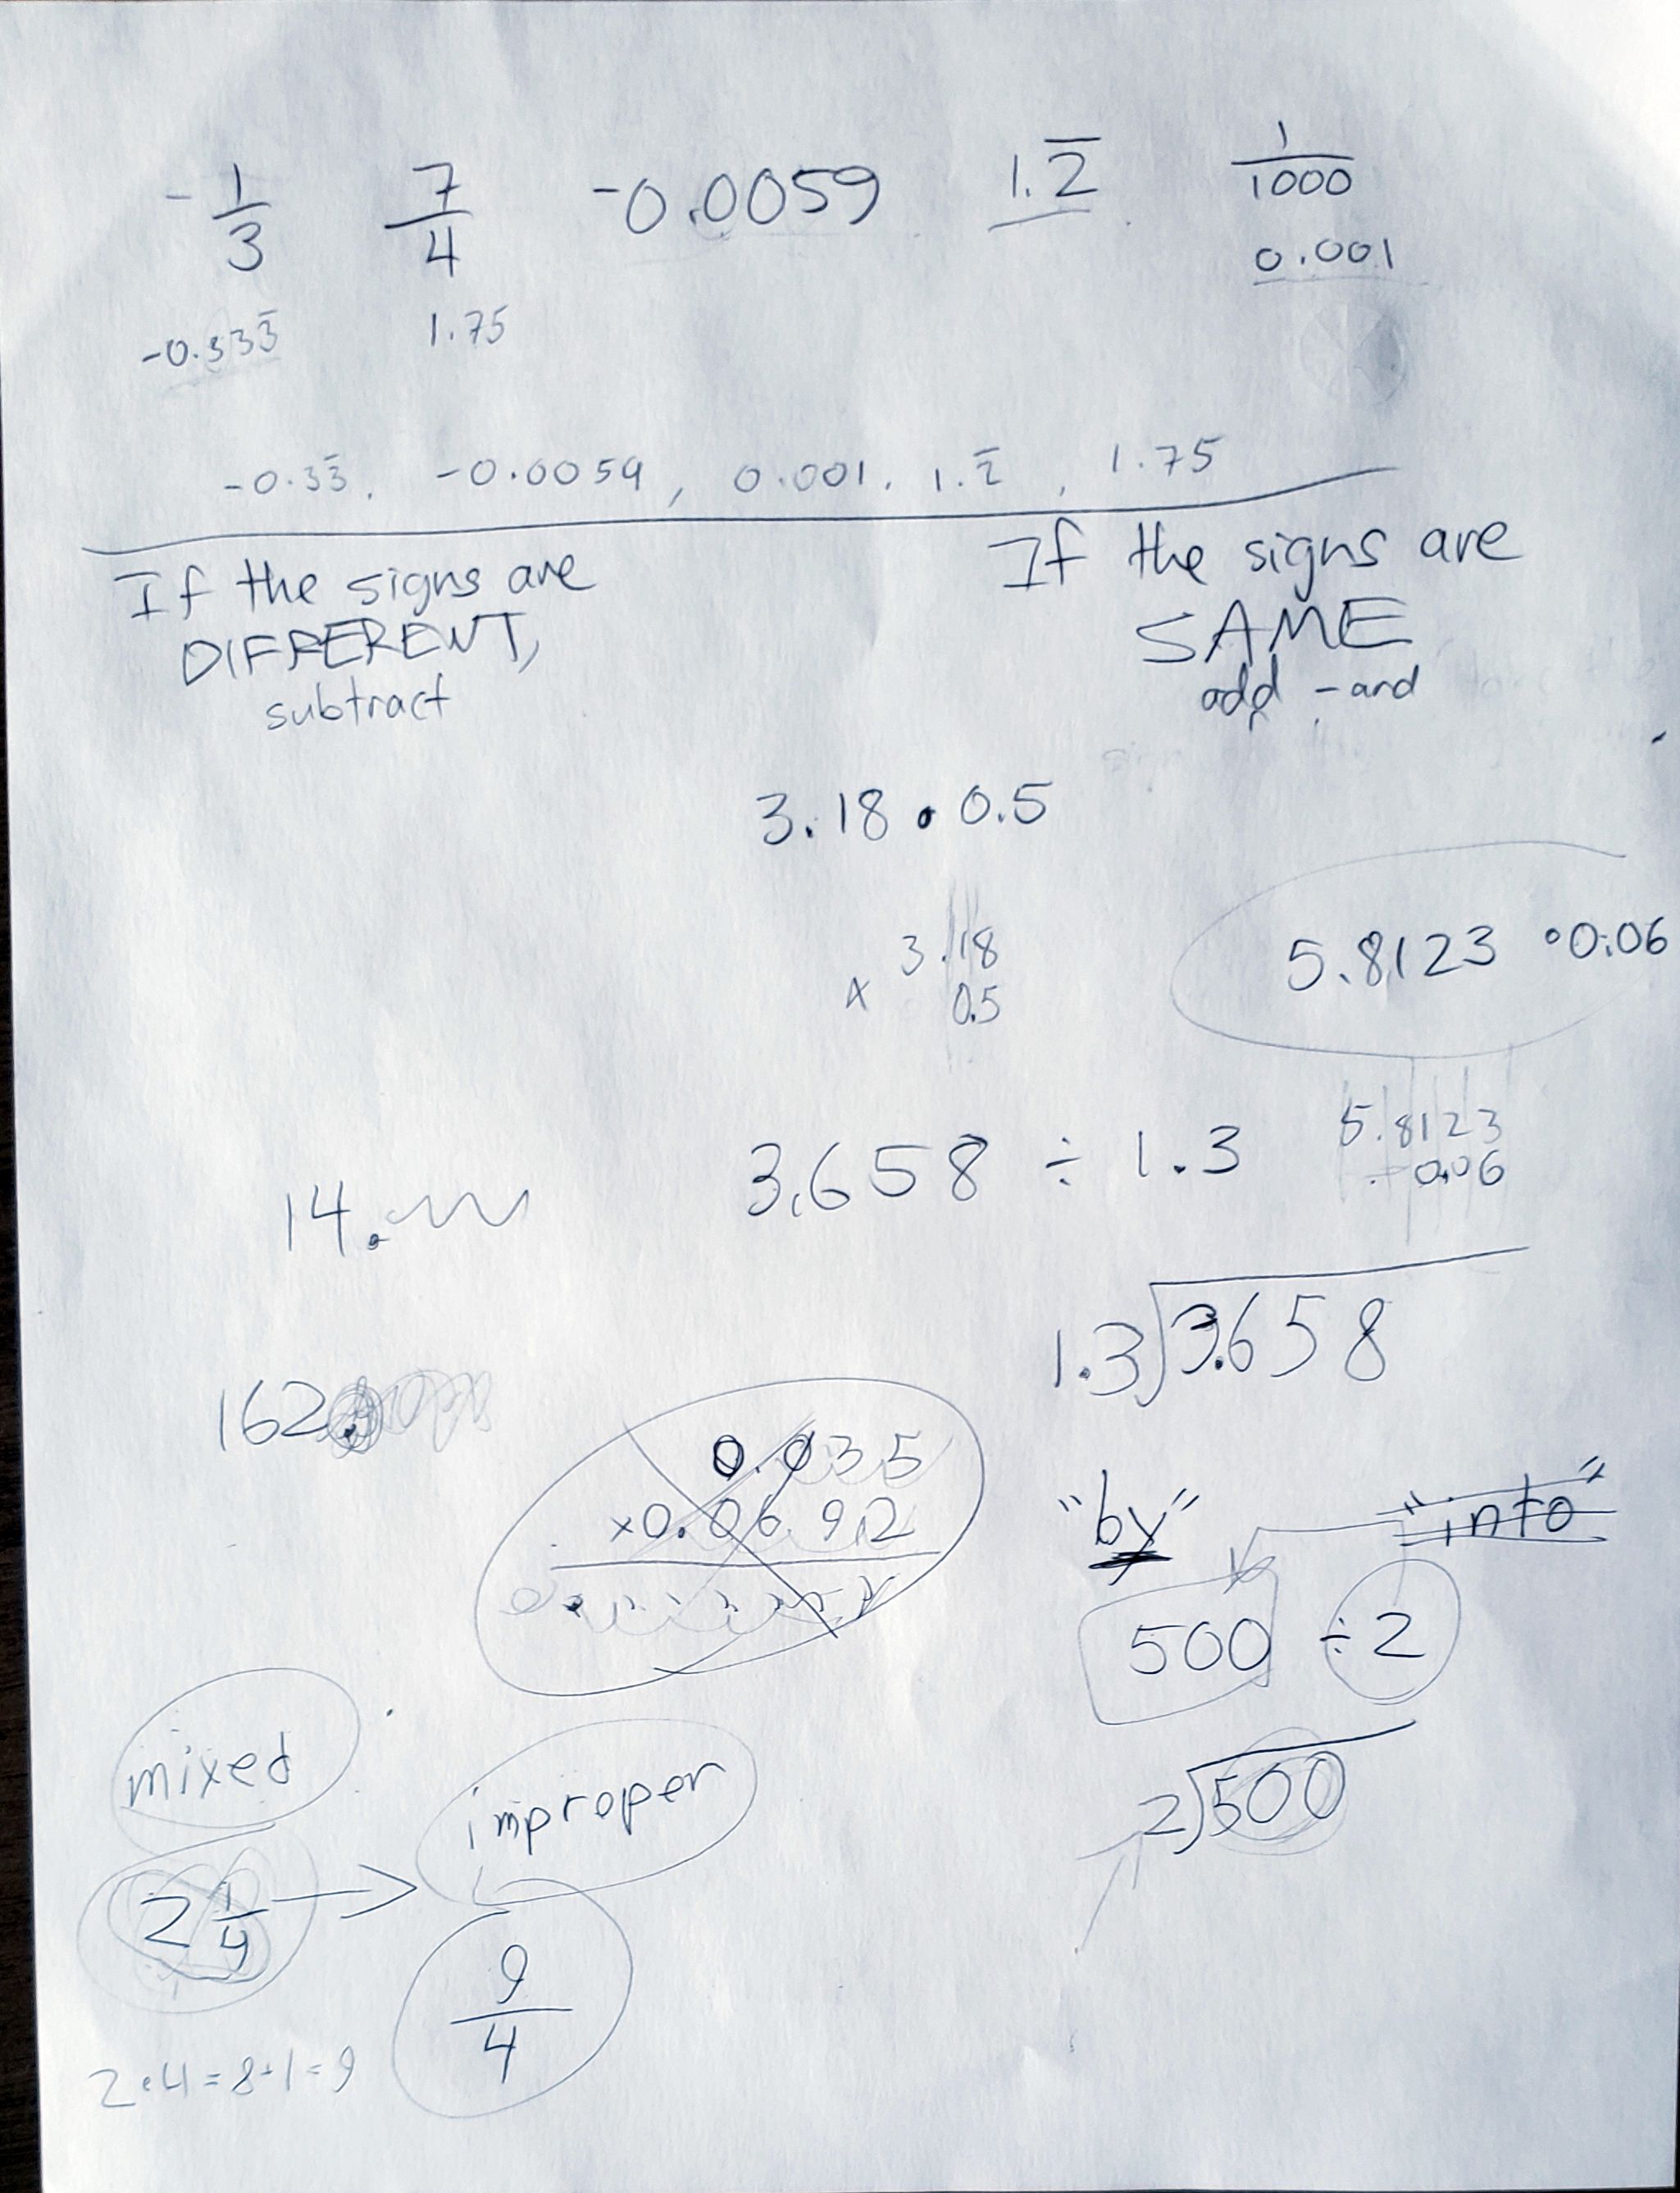 - 1/3   7/4   -0.0059   1.2̅   1/1000
0.001
-0.333̅   1.75
-0.33̅, -0.0059, 0.001, 1.2̅, 1.75
If the signs are
DIFFERENT,
subtract
If the signs are
SAME
add - and
3.18 • 0.5
3.18
x 0.5
5.8123 • 0.06
5.8123
0.06
3.658 ÷ 1.3
14.
1.3)3.658
162.
0.035
x0.0692
0.
"by" "into"
500 ÷ 2
2)500
mixed
improper
2 1/4 → 9/4
2•4=8+1=9